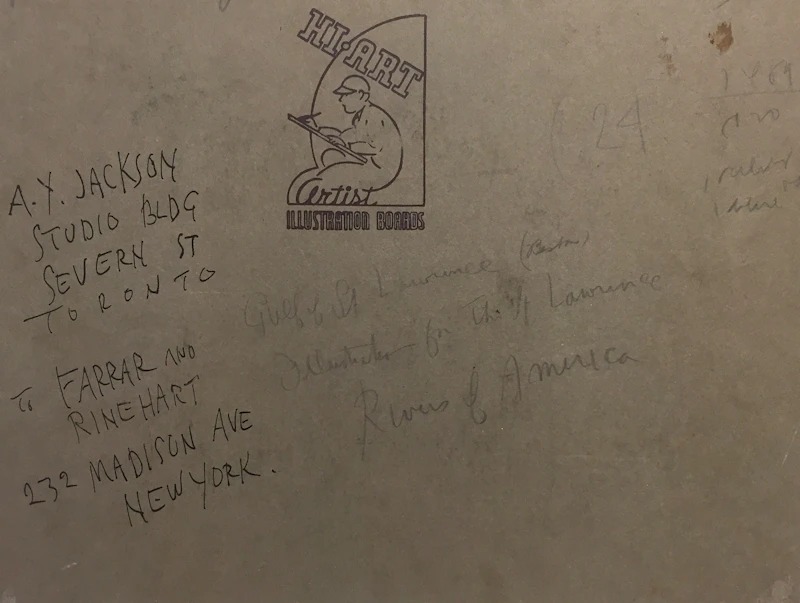 HI-ART
Artist
ILLUSTRATION BOARDS
A.Y. JACKSON
STUDIO BLDG
SEVERN ST
TORONTO
To FARRAR AND
RINEHART
232 MADISON AVE
NEW YORK.
24
Gulf of St Lawrence
Illustration for The St Lawrence
Rivers of America